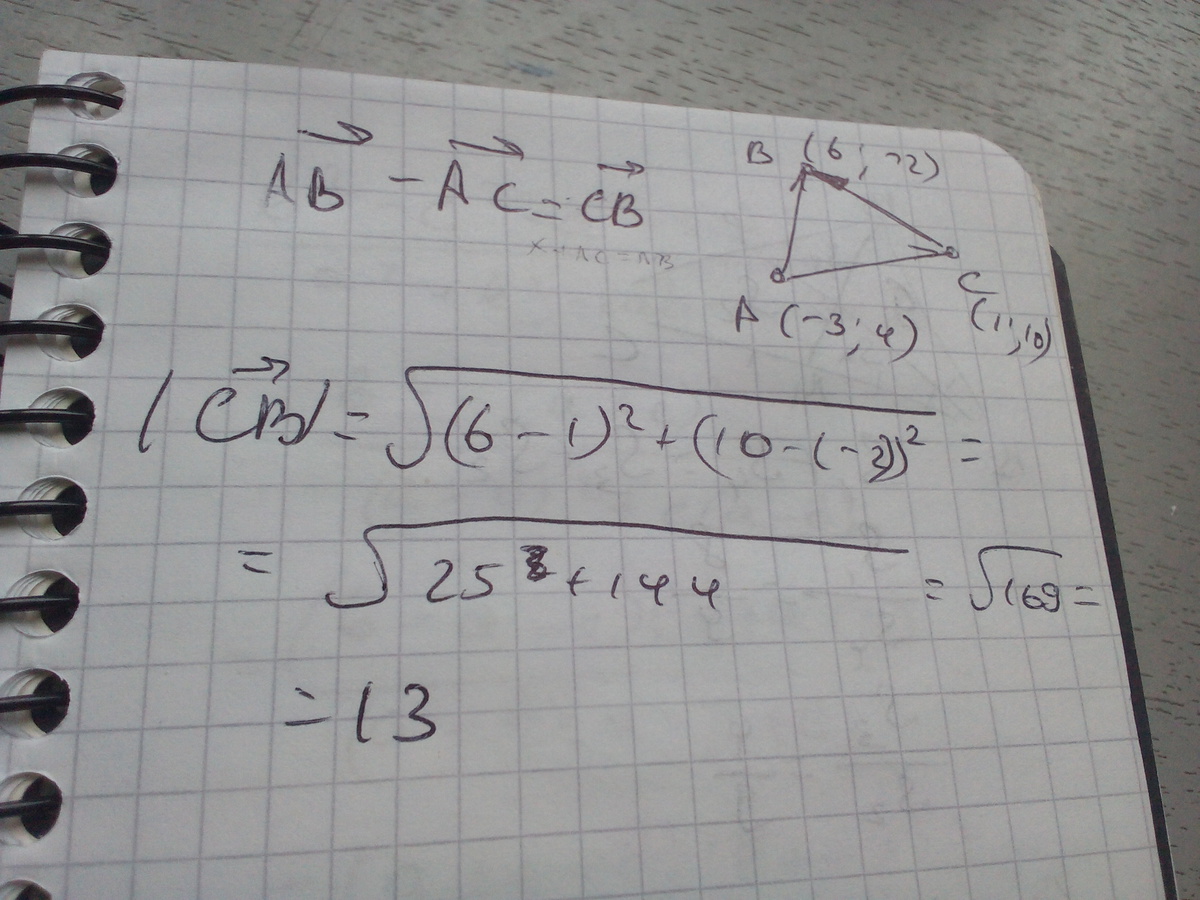 AB - AC = CB
x + AC = AB
B (6; -2)
A (-3; 4)
C
(1; 10)
|CB| = √(6-1)² + (10-(-2))² =
= √25 + 144 = √169 =
= 13